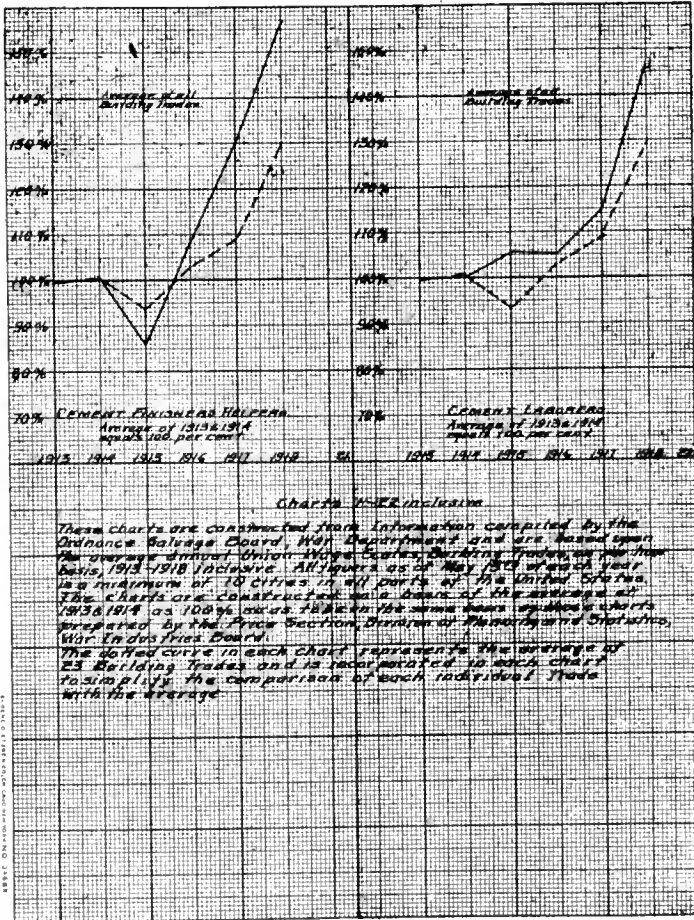 150%
140%
130%
120%
110%
100%
90%
80%
70%
Average of all
Building Trades
CEMENT FINISHERS HELPERS
Average of 1913 & 1914
equals 100 per cent
1913 1914 1915 1916 1917 1918
150%
140%
130%
120%
110%
100%
90%
80%
70%
Average of all
Building Trades
CEMENT LABORERS
Average of 1913 & 1914
equals 100 per cent
1913 1914 1915 1916 1917 1918
Charts 1-22 inclusive
These charts are constructed from Information compiled by the
Ordnance Salvage Board, War Department and are based upon
the average annual Union Wage Scales, Building Trades, on per hour
basis, 1913-1918 inclusive. All figures as of May of each year
is a minimum of 10 cities in all parts of the United States.
The charts are constructed on a basis of the average of
1913 & 1914 as 100% the same basis as charts
prepared by the Price Section, Division of Planning and Statistics,
War Industries Board.
The dotted curve in each chart represents the average of
23 Building Trades and is incorporated in each chart
to simplify the comparison of each individual Trade
with the average